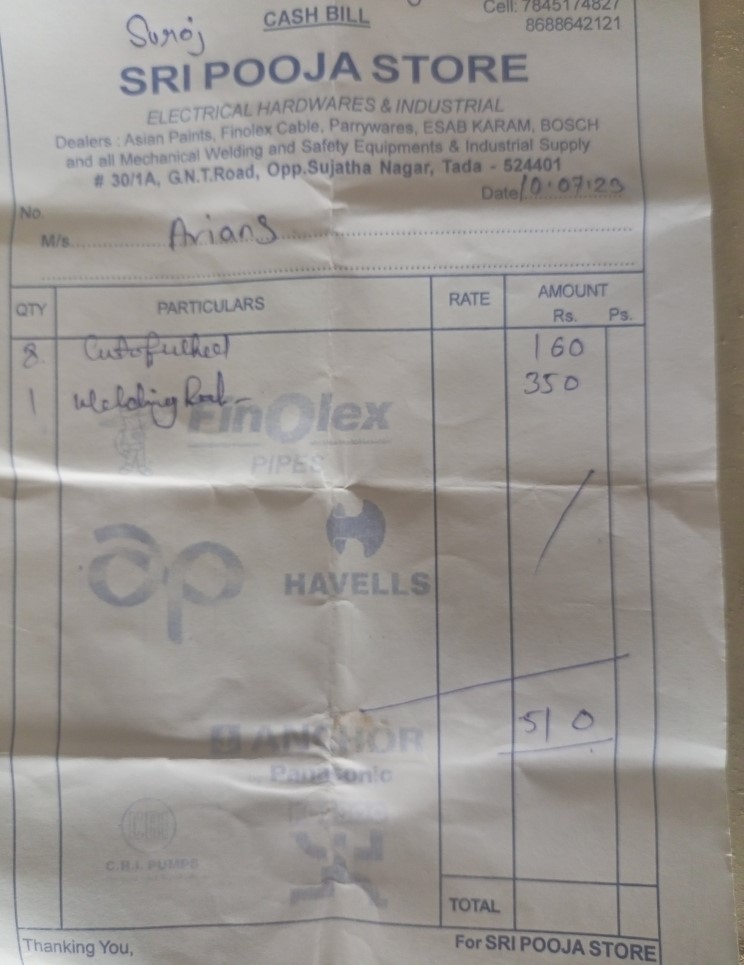 Cell: 7845174827
CASH BILL
8688642121
Suroj
SRI POOJA STORE
ELECTRICAL HARDWARES & INDUSTRIAL
Dealers : Asian Paints, Finolex Cable, Parrywares, ESAB KARAM, BOSCH
and all Mechanical Welding and Safety Equipments & Industrial Supply
# 30/1A, G.N.T.Road, Opp.Sujatha Nagar, Tada - 524401
Date 10.07.23
No.
M/s. Arians
QTY PARTICULARS RATE AMOUNT
Rs. Ps.
8 160
1 Welding 350
Finolex
PIPES
ap
HAVELLS
510
ANCHOR
Panasonic
C.R.I. PUMPS
TOTAL
Thanking You, For SRI POOJA STORE